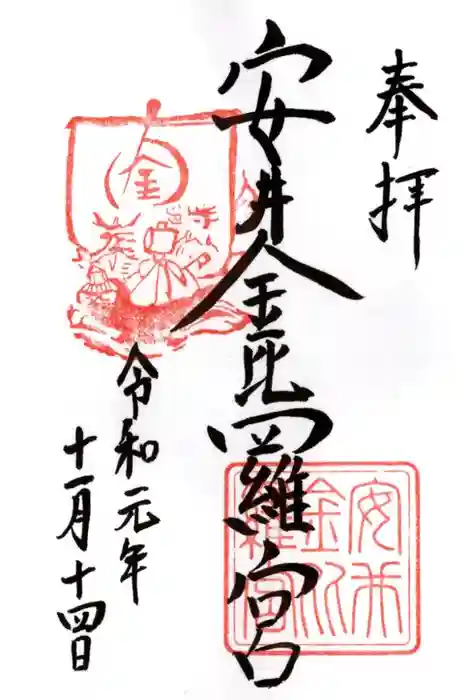 奉拝
安井金毘羅宮
令和元年
十一月十四日
金
安井
金比
羅宮